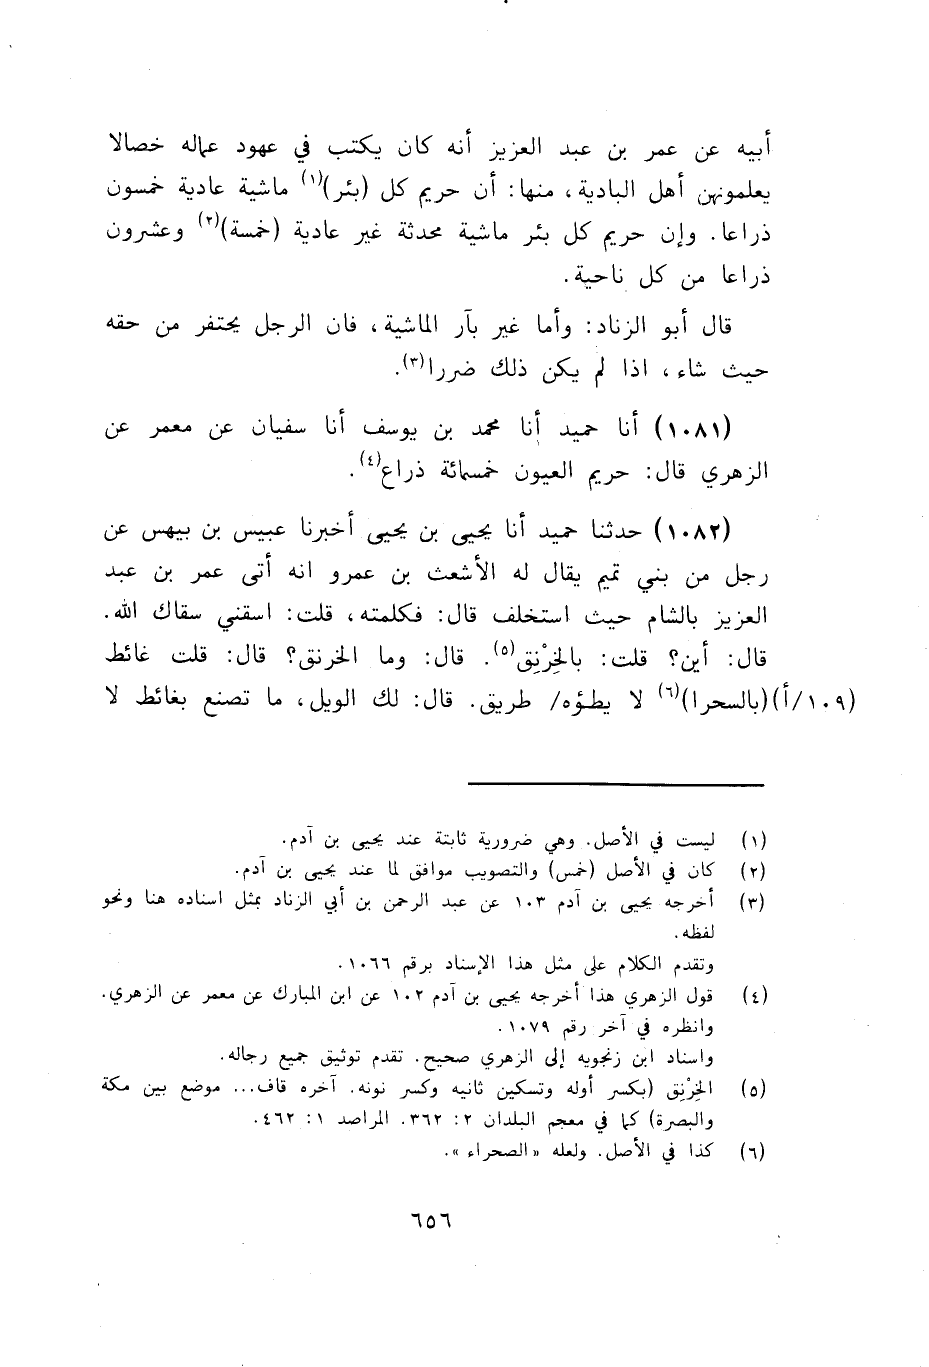 أبيه عن عمر بن عبد العزيز أنه كان يكتب في عهود عماله خصالا
يعلمونهن أهل البادية، منها: أن حريم كل (بئر)(١) ماشية عادية خمسون
ذراعا. وإن حريم كل بئر ماشية محدثة غير عادية (خمسة)(٢) وعشرون
ذراعا من كل ناحية.
قال أبو الزناد: وأما غير بآر الماشية، فان الرجل يحتفر من حقه
حيث شاء، اذا لم يكن ذلك ضررا(٣).
(١٠٨١) أنا حميد أنا محمد بن يوسف أنا سفيان عن معمر عن
الزهري قال: حريم العيون خمسمائة ذراع(٤).
(١٠٨٢) حدثنا حميد أنا يحيى بن يحيى أخبرنا عبيس بن بيهس عن
رجل من بني تميم يقال له الأشعث بن عمرو انه أتى عمر بن عبد
العزيز بالشام حيث استخلف قال: فكلمته، قلت: اسقني سقاك الله.
قال: أين؟ قلت: بالخِرْنِق(٥). قال: وما الخرنق؟ قال: قلت غائط
(١٠٩/أ)(بالسحرا)(٦) لا يطؤه/ طريق. قال: لك الويل، ما تصنع بغائط لا
(١) ليست في الأصل. وهي ضرورية ثابتة عند يحيى بن آدم.
(٢) كان في الأصل (خمس) والتصويب موافق لما عند يحيى بن آدم.
(٣) أخرجه يحيى بن آدم ١٠٣ عن عبد الرحمن بن أبي الزناد بمثل اسناده هنا ونحو
لفظه.
وتقدم الكلام على مثل هذا الإسناد برقم ١٠٦٦.
(٤) قول الزهري هذا أخرجه يحيى بن آدم ١٠٢ عن ابن المبارك عن معمر عن الزهري.
وانظره في آخر رقم ١٠٧٩.
واسناد ابن زنجويه إلى الزهري صحيح. تقدم توثيق جميع رجاله.
(٥) الخِرْنِق (بكسر أوله وتسكين ثانيه وكسر نونه. آخره قاف... موضع بين مكة
والبصرة) كما في معجم البلدان ٢: ٣٦٢. المراصد ١: ٤٦٢.
(٦) كذا في الأصل. ولعله «الصحراء».
٦٥٦